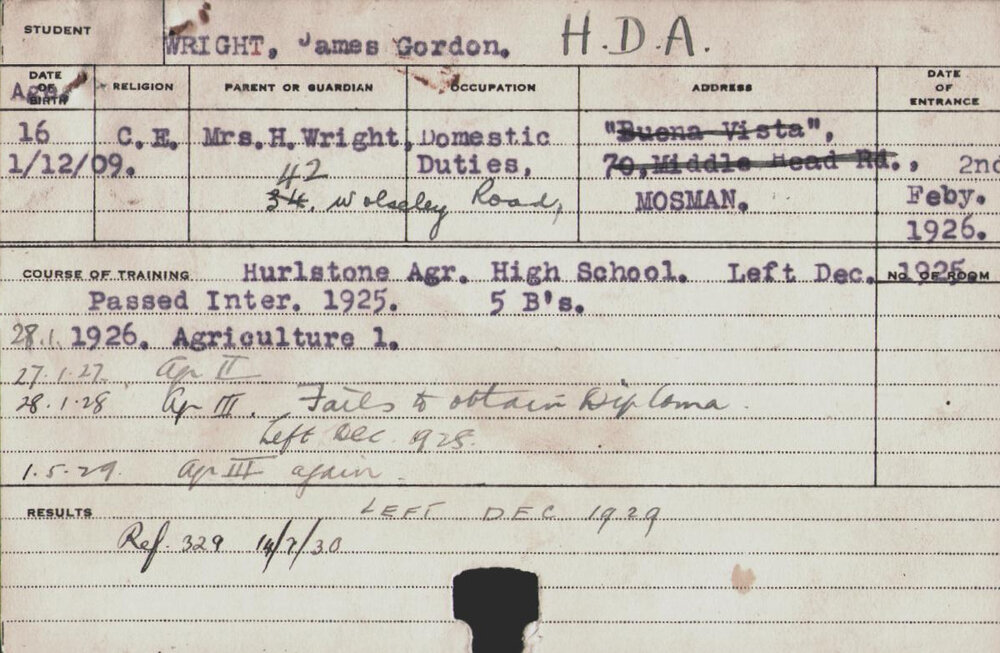 STUDENT
WRIGHT, James Gordon. H.D.A.
DATE OF BIRTH Age. RELIGION PARENT OR GUARDIAN OCCUPATION ADDRESS DATE OF ENTRANCE
16 C.E. Mrs.H.Wright, Domestic "Buena Vista",
1/12/09. Duties, 70, Middle Head Rd., 2nd
42
34. Wolseley Road, MOSMAN. Feby.
1926.
COURSE OF TRAINING Hurlstone Agr. High School. Left Dec. 1925. NO. OF ROOM
Passed Inter. 1925. 5 B's.
28.1. 1926. Agriculture 1.
27.1.27. Agr II
28.1.28 Agr III. Fails to obtain Diploma.
Left Dec. 1928.
1.5.29. Agr III again.
RESULTS LEFT DEC 1929
Ref. 329 14/7/30